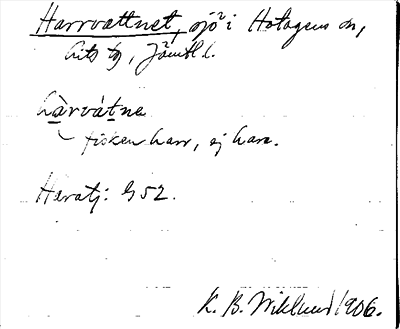 Harrvattnet, sjö i Hotagens sn,
Lits tg, Jämtl l.
hàrvàtne
fisken harr, ej hare.
Häratj: G 52.
K. B. Wiklund 1906.